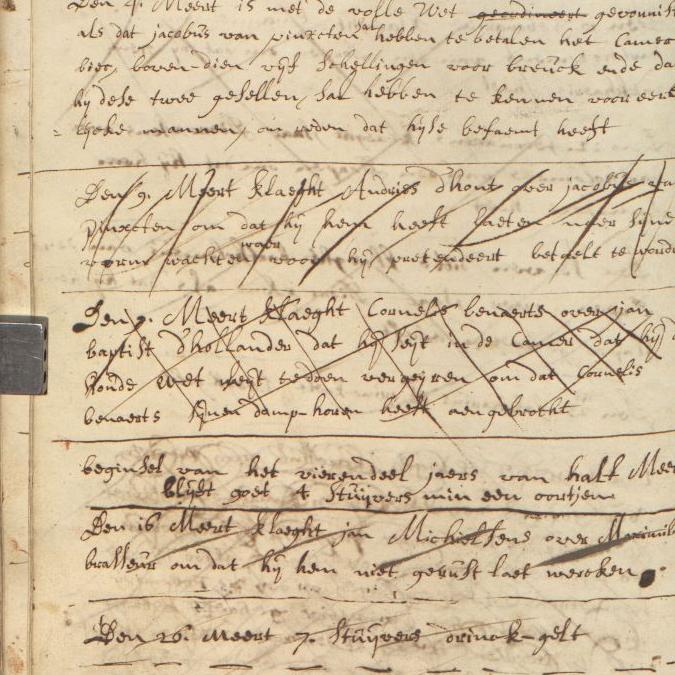 Den 4. Meert is met de volle Wet geordineert gevonnist
als dat jacobus van pinxcten sal hebben te betalen het Camer
bier, boven-dien vijf schellingen voor breuck ende dat
hij dese twee gesellen, sal hebben te kennen voor eer
= lijcke mannen, om reden dat hijse befaemt heeft
Den 9. Meert klaeght Andries d'hont over jacobus van
pinxcten om dat hij hem heeft laeten naer sijne
wachten waer voor hij pretendeert betaelt te worden
Den 9. Meert klaeght Cornelis benaerts over jan
baptist d'hollander dat hij seijt in de Camer dat hij
sonde Wet niet te doen vergaeren om dat Cornelis
benaerts sijnen damp-horen heeft aengebrocht
beginsel van het vierendeel jaers van half Meert
blijft goet 4 stuijvers min een oortjen
Den 16 Meert klaeght jan Michielsens over
brasseur om dat hij hem niet gerust laet wercken
Den 26. Meert 7. stuijvers drinck-gelt